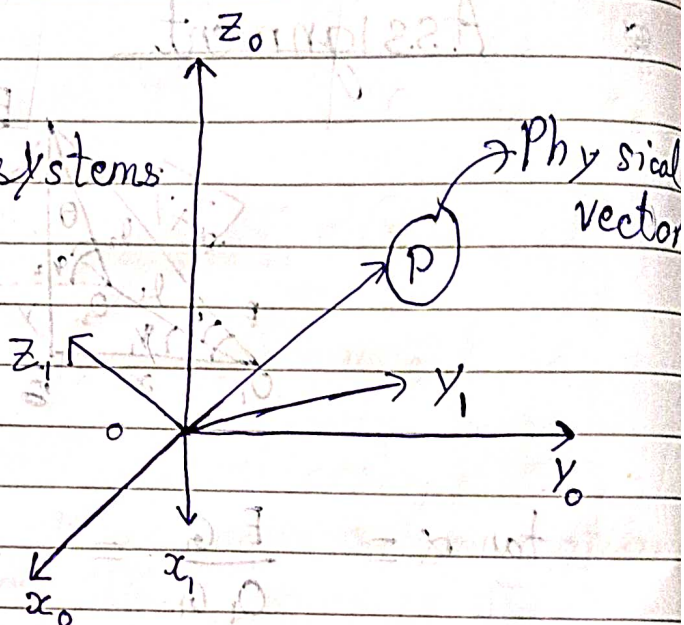 z₀
systems
Physical
vector
P
z₁
y₁
o
y₀
x₁
x₀